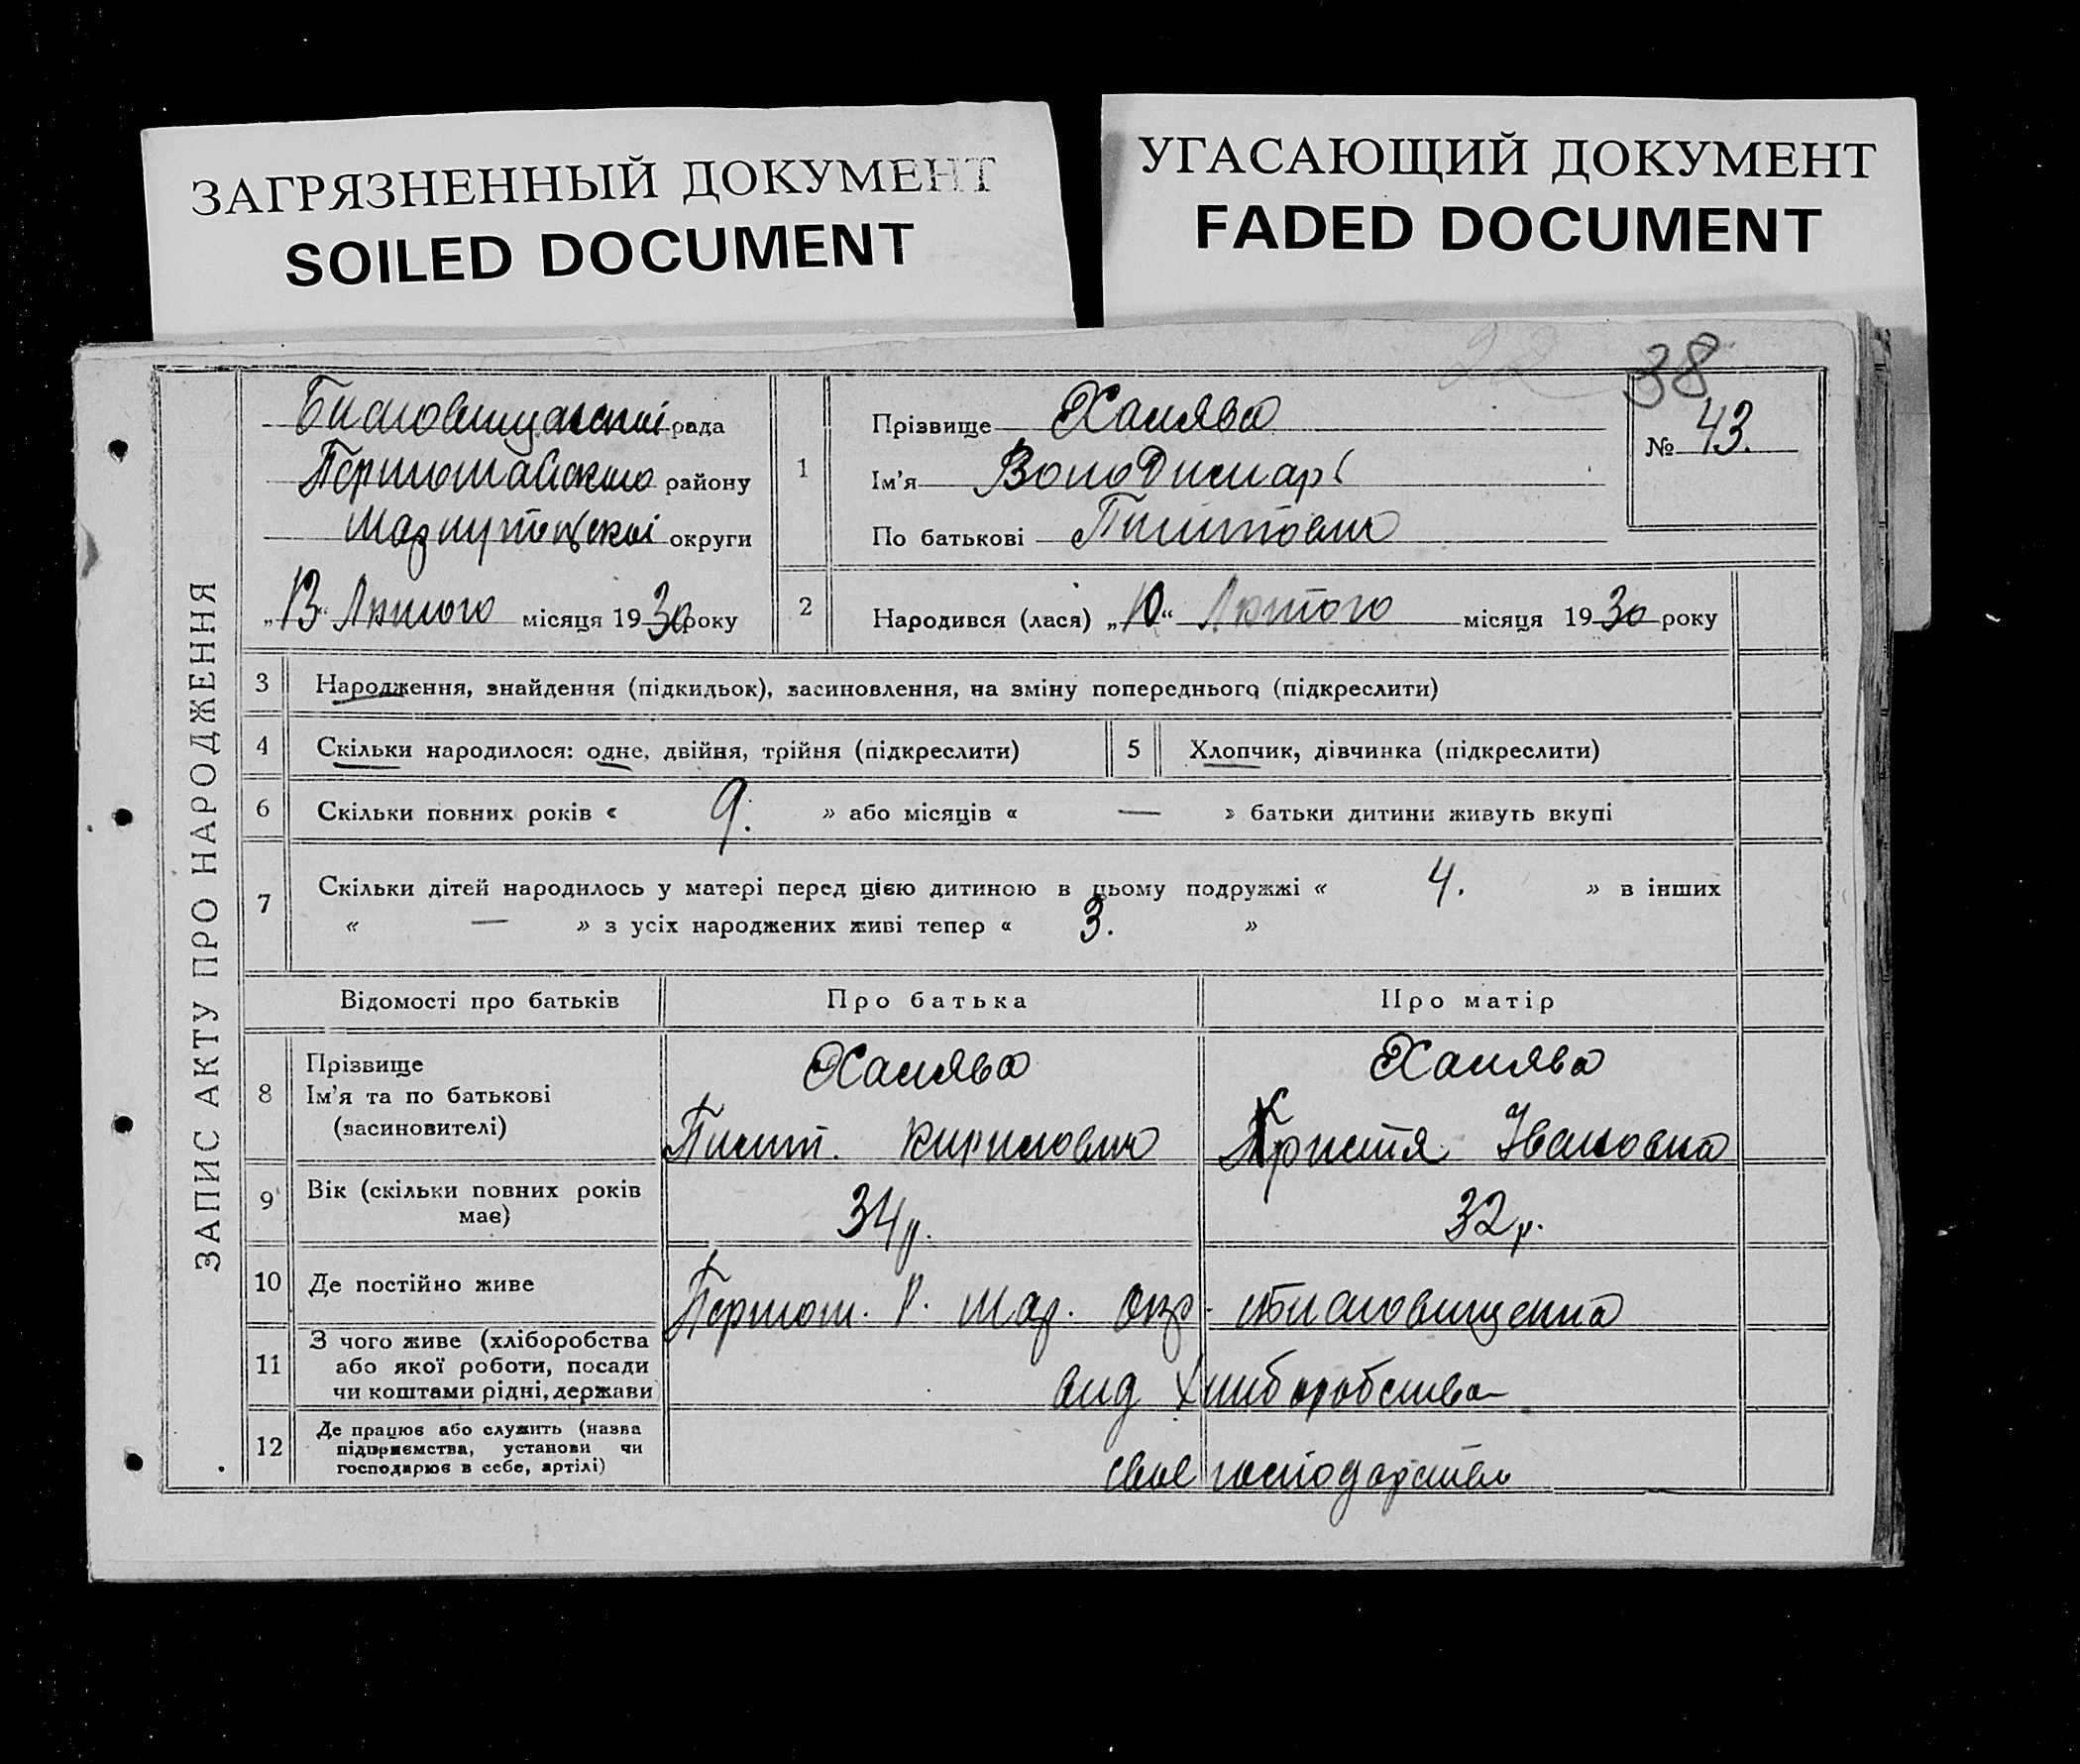 ЗАГРЯЗНЕННЫЙ ДОКУМЕНТ
SOILED DOCUMENT
УГАСАЮЩИЙ ДОКУМЕНТ
FADED DOCUMENT
22 38
ЗАПИС АКТУ ПРО НАРОДЖЕННЯ
рада
району
округи
„13“ Лютого місяця 1930 року
1
Прізвище Халява
Ім'я Володимарь
По батькові Пилипович
№ 43.
2 Народився (лася) „10“ Лютого місяця 1930 року
3 Народження, знайдення (підкидьок), засиновлення, на зміну попереднього (підкреслити)
4 Скільки народилося: одне, двійня, трійня (підкреслити)
5 Хлопчик, дівчинка (підкреслити)
6 Скільки повних років « 9. » або місяців « — » батьки дитини живуть вкупі
7 Скільки дітей народилось у матері перед цією дитиною в цьому подружжі « 4. » в інших
« — » з усіх народжених живі тепер « 3. »
Відомості про батьків Про батька Про матір
8 Прізвище
Ім'я та по батькові
(засиновителі)
Халява
Пилип. Кирилович
Халява
Христя Івановна
9 Вік (скільки повних років
має)
34 р. 32 р.
10 Де постійно живе
Першом. Р. Мар. Окр.
11 З чого живе (хліборобства
або якої роботи, посади
чи коштами рідні, держави
вид Хлиборобства
12 Де працює або служить (назва
підприємства, установи чи
господарює в себе, артілі)
свое господарство